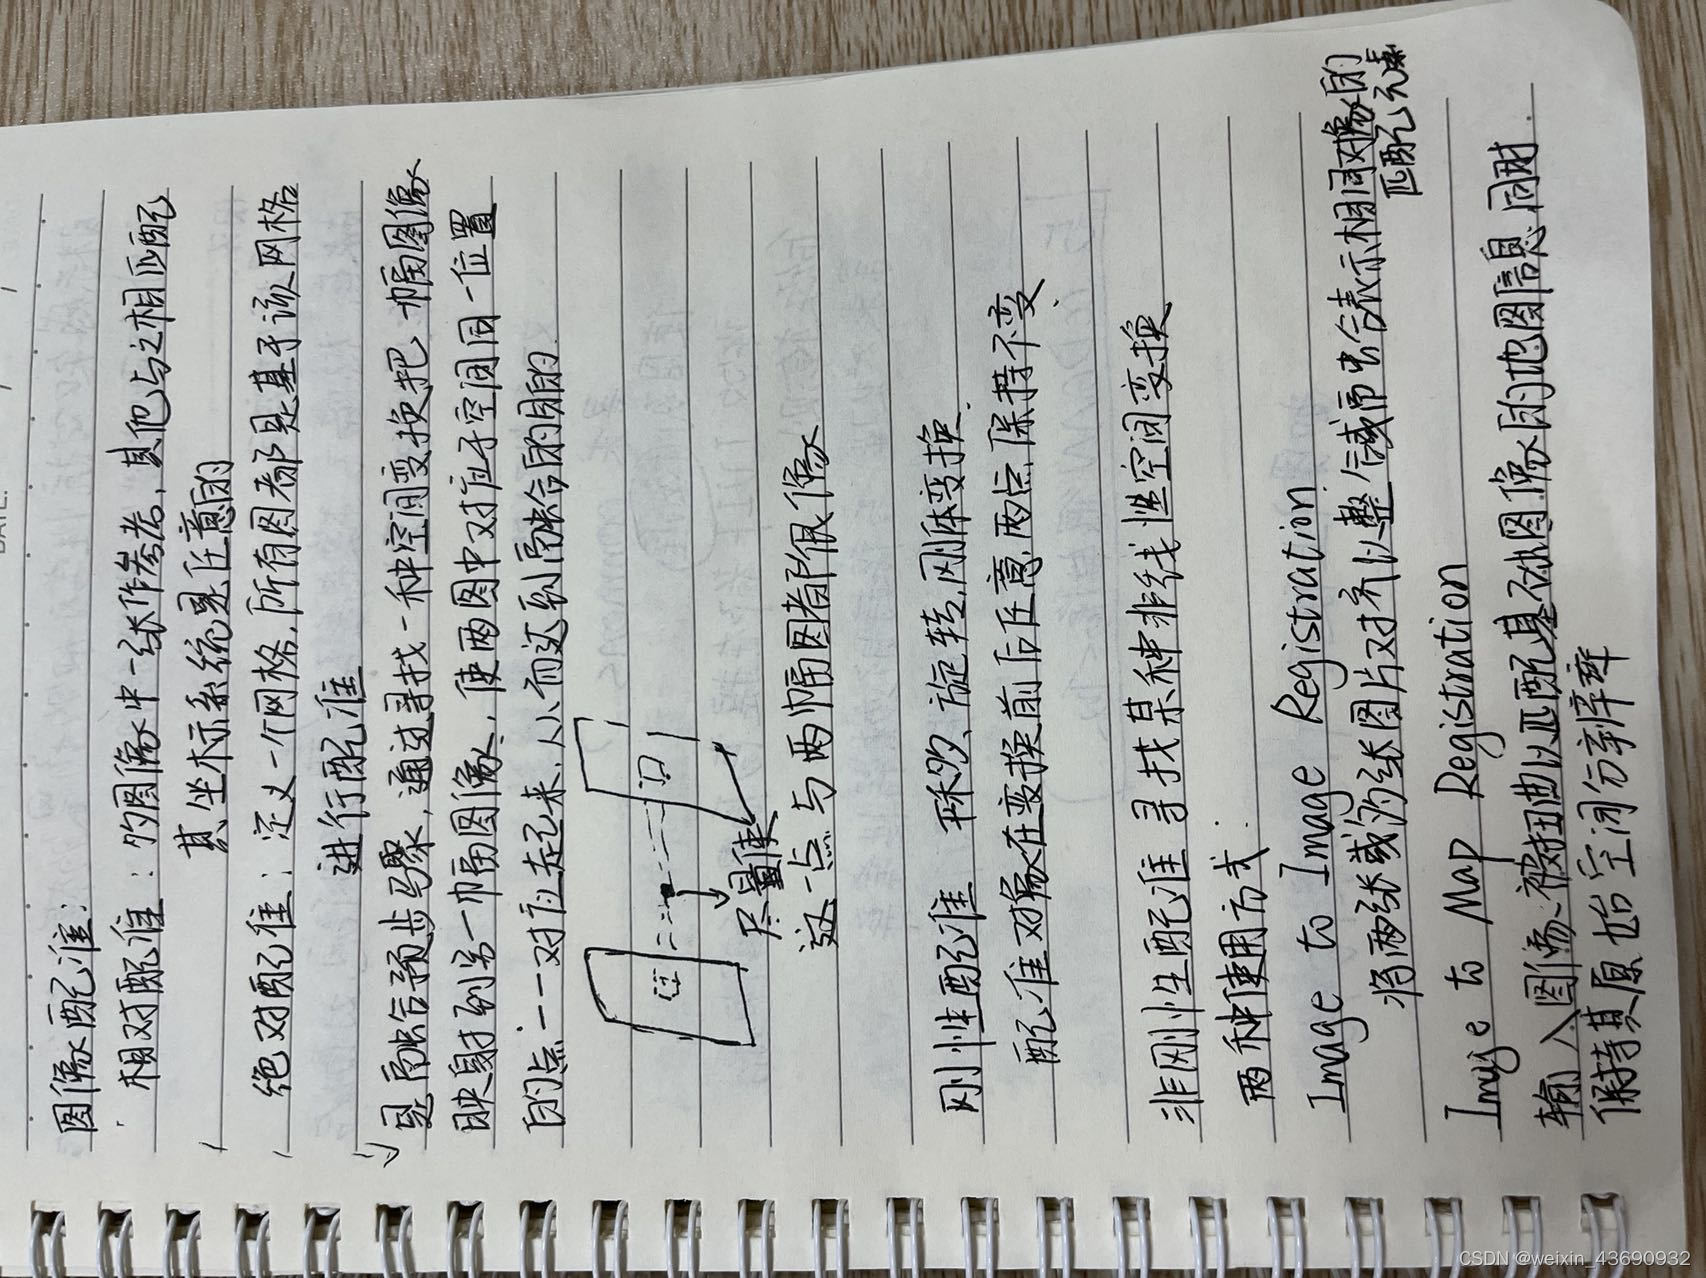 DATE:
图像配准：
相对配准：的图像中一张作参考，其他与之相匹配
其坐标系统是任意的
绝对配准：定义一个网格，所有图都是基于该网格
进行配准
是融合预步骤，通过寻找一种空间变换把一幅图像
映射到另一幅图像，使两图中对应于空间同一位置
的点一一对应起来，从而达到融合的目的.
尽量使
这一点与两幅图都很像
刚性配准 平移、旋转、刚体变换.
配准对象在变换前后任意两点保持不变
非刚性配准 寻找某种非线性空间变换
两种使用方式：
Image to Image Registration
将两张或多张图片对齐以整合或市出表示相同对象的
匹配元素
Image to Map Registration
输入图像被扭曲以匹配基础图像的地图信息同时.
保持其原始空间分辨率
CSDN @weixin_43690932